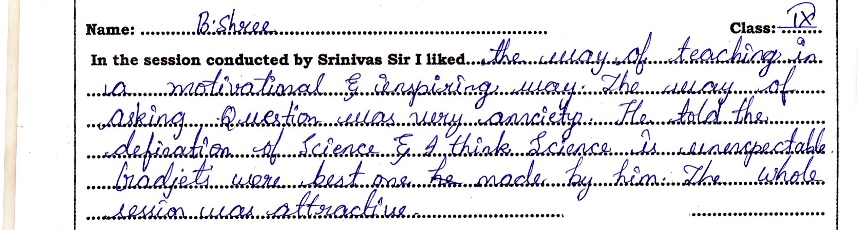 Name: B. Shree Class: IX
In the session conducted by Srinivas Sir I liked the way of teaching in
a motivational & inspiring way. The way of
asking Question was very anxciety. He told the
defination of Science & I think Science is unexspectable
Gradjets were best one he made by him. The whole
session was attractive.